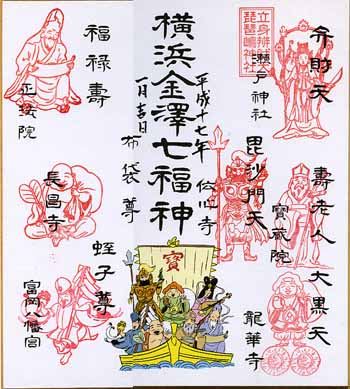 弁財天
瀬戸神社
琵琶嶋神社
壽老人
寶蔵院
大黒天
龍華寺
毘沙門天
伝心寺
平成十七年
横浜金澤七福神
一月吉日
布袋尊
長昌寺
蛭子尊
富岡八幡宮
福禄壽
正法院
寶